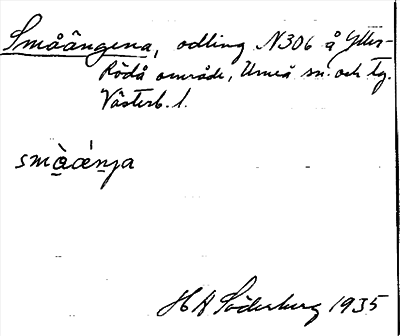 Småängena, odling N306 å Ytter-
Rödå område, Umeå sn. och tg.
Västerb. l.
smà̱ǽnja
H A Söderberg 1935